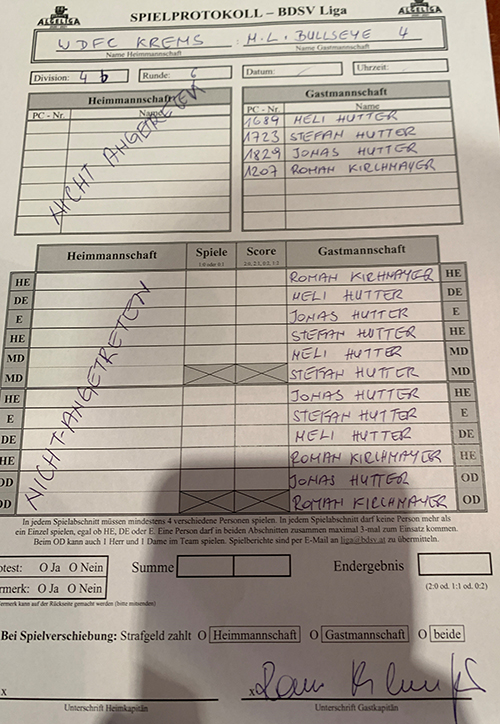 ALGELIGA SPIELPROTOKOLL – BDSV Liga ALGELIGA
WDFC KREMS : M.L. BULLSEYE 4
Name Heimmannschaft Name Gastmannschaft
Division: 4 b Runde: 6 Datum: Uhrzeit:
Heimmannschaft
PC - Nr. Name
NICHT ANGETRETEN
Gastmannschaft
PC - Nr. Name
1689 HELI HUTTER
1723 STEFAN HUTTER
1829 JONAS HUTTER
1207 ROMAN KIRCHMAYER
Heimmannschaft Spiele Score Gastmannschaft
1:0 oder 0:1 2:0, 2:1, 0:2, 1:2
NICHT-ANGETRETEN
HE ROMAN KIRHMAYER HE
DE HELI HUTTER DE
E JONAS HUTTER E
HE STEFAN HUTTER HE
MD HELI HUTTER MD
MD STEFAN HUTTER MD
HE JONAS HUTTER HE
E STEFAN HUTTER E
DE HELI HUTTER DE
HE ROMAN KIRCHMAYER HE
OD JONAS HUTTER OD
OD ROMAN KIRCHMAYER OD
In jedem Spielabschnitt müssen mindestens 4 verschiedene Personen spielen. In jedem Spielabschnitt darf keine Person mehr als
ein Einzel spielen, egal ob HE, DE oder E. Eine Person darf in beiden Abschnitten zusammen maximal 3-mal zum Einsatz kommen.
Beim OD kann auch 1 Herr und 1 Dame im Team spielen. Spielberichte sind per E-Mail an liga@bdsv.at zu übermitteln.
otest: O Ja O Nein Summe Endergebnis
rmerk: O Ja O Nein (2:0 od. 1:1 od. 0:2)
ermerk kann auf der Rückseite gemacht werden (bitte mitsenden)
Bei Spielverschiebung: Strafgeld zahlt O Heimmannschaft O Gastmannschaft O beide
x x
Unterschrift Heimkapitän Unterschrift Gastkapitän